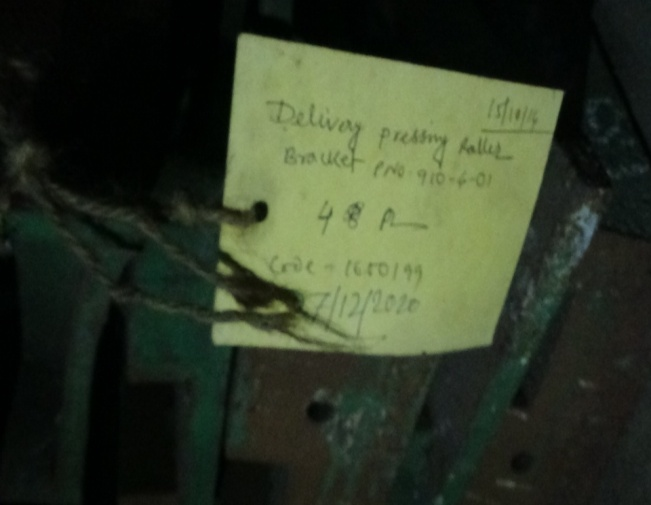 15/10/14
Delivery pressing Roller
Bracket PNO-910-6-01
48
Code - 1650199
7/12/2020